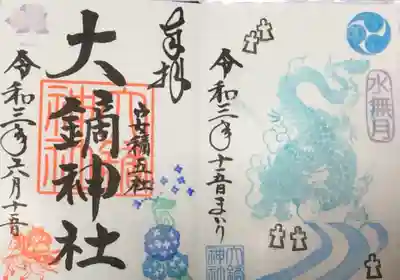 水無月
令和三年十五日まいり
大鏑神社
奉拝
安積五社
大鏑神社
令和三年六月十五日